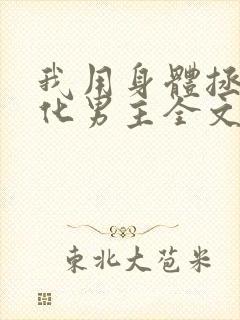 我用身體拯
化男主全文
東北大苞米